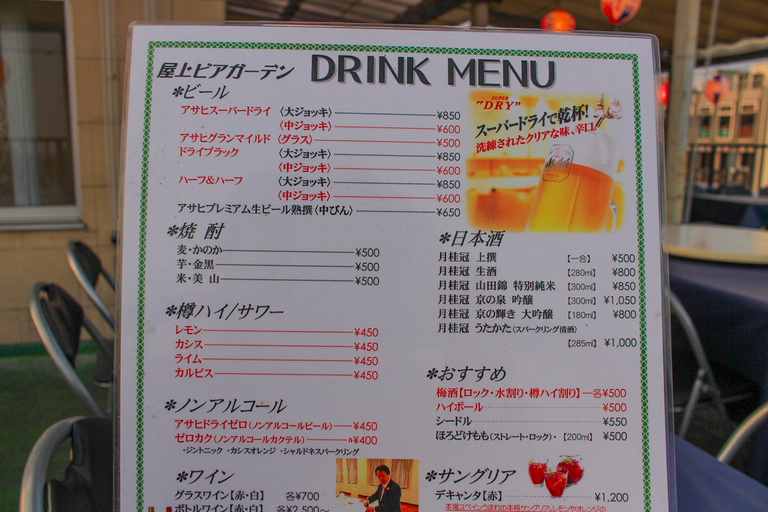 屋上ビアガーデン DRINK MENU
*ビール
アサヒスーパードライ 〈大ジョッキ〉 ¥850
〈中ジョッキ〉 ¥600
アサヒグランマイルド 〈グラス〉 ¥500
ドライブラック 〈大ジョッキ〉 ¥850
〈中ジョッキ〉 ¥600
ハーフ&ハーフ 〈大ジョッキ〉 ¥850
〈中ジョッキ〉 ¥600
アサヒプレミアム生ビール熟撰〈中びん〉 ¥650
SUPER
"DRY"
スーパードライで乾杯!
洗練されたクリアな味、辛口!!
*焼 酎
麦・かのか ¥500
芋・金黒 ¥500
米・美 山 ¥500
*樽ハイ/サワー
レモン ¥450
カシス ¥450
ライム ¥450
カルピス ¥450
*ノンアルコール
アサヒドライゼロ(ノンアルコールビール) ¥450
ゼロカク(ノンアルコールカクテル) 各¥400
・ジントニック ・カシスオレンジ ・シャルドネスパークリング
*ワイン
グラスワイン【赤・白】 各¥700
ボトルワイン【赤・白】 各¥2,500~
*日本酒
月桂冠 上撰 【一合】 ¥500
月桂冠 生酒 【280ml】 ¥800
月桂冠 山田錦 特別純米 【300ml】 ¥850
月桂冠 京の泉 吟醸 【300ml】 ¥1,050
月桂冠 京の輝き 大吟醸 【180ml】 ¥800
月桂冠 うたかた(スパークリング清酒)
【285ml】 ¥1,000
*おすすめ
梅酒【ロック・水割り・樽ハイ割り】 各¥500
ハイボール ¥500
シードル ¥550
ほろどけもも(ストレート・ロック)・【200ml】 ¥500
*サングリア
デキャンタ【赤】 ¥1,200
本場スペインうまれの本格サングリア。レモンやオレンジの